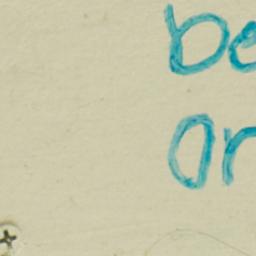 be
or